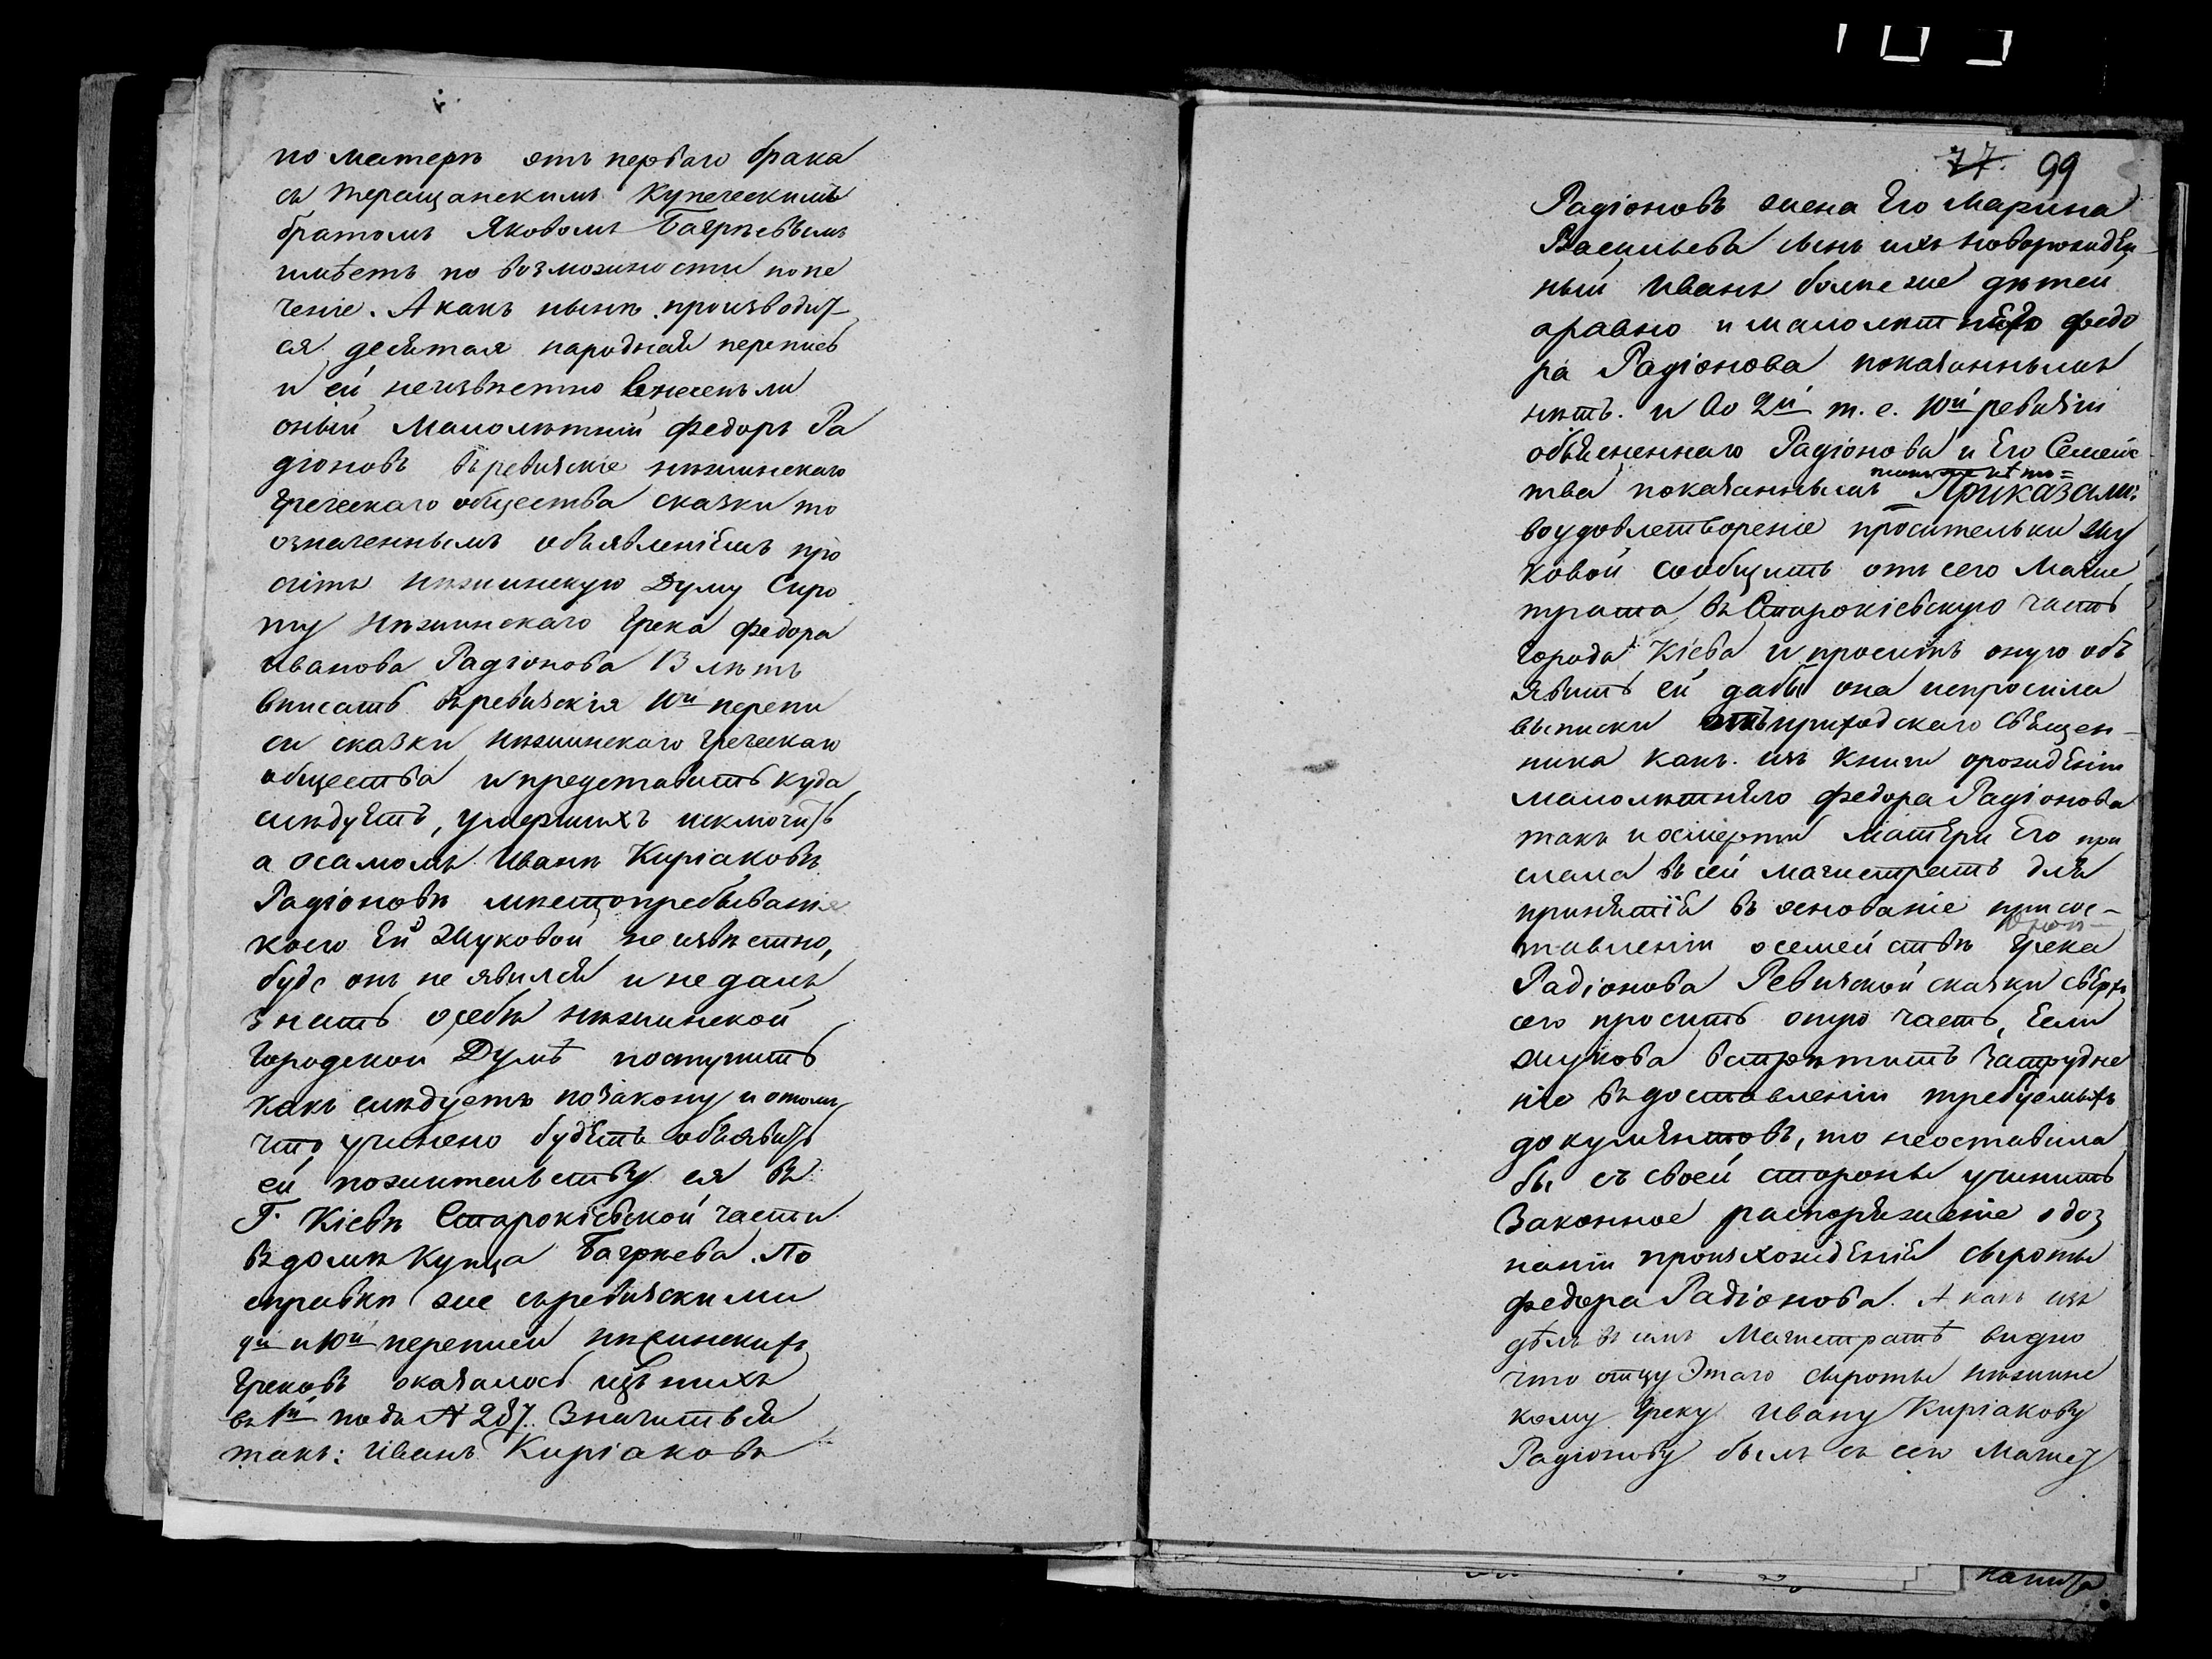 по матерѣ отъ перваго брака
съ Таращанскимъ Купеческимъ
братомъ Яковомъ Багрѣевымъ
имѣетъ по возможности попе
ченіе. А какъ нынѣ производит
ся десятая народная перепись
и ей неизвѣстно внесенъ ли
оный Малолѣтній Федоръ Ра
діоновъ въ ревизскіе нѣжинскаго
Греческаго общества сказки то
означеннымъ объявленіемъ про
ситъ нѣжинскую Думу Сиро
ту Нѣжинскаго Грека Федора
Иванова Радіонова 13 лѣтъ
вписать въ ревизскія 10й перепи
си сказки нѣжинскаго Греческаго
общества и представить куда
слѣдуетъ, умершихъ исключить
а о самомъ Иванѣ Киріаковѣ
Радіоновѣ мѣстопребываніе
коего Ей Жуковой неизвѣстно,
буде онъ не явился и не далъ
знать о себѣ нѣжинской
Городской Думѣ поступить
какъ слѣдуетъ по закону и о томъ
что учинено будетъ объявить
ей по жительству ея въ
Г. Кіевѣ Старокіевской части
въ домѣ Купца Багрѣева. По
справкѣ же съ ревизскими
9й и 10й переписи нѣжинскихъ
Грековъ оказалось изъ нихъ
въ 1й подъ № 287. Значится
такъ: Иванъ Киріаковъ
77. 99
Радіоновъ жена Его Марина
Васильева сынъ ихъ новорожден
ный Иванъ болѣе же дѣтей
аравно и малолѣтнего Федо
ра Радіонова показаннымъ
нѣтъ. и во 2й т. е. 10й ревизіи
объясненнаго Радіонова и Его Семейс
тва показаннымъ Приказали:
также нѣтъ =
воудовлетвореніе просительки Жу
ковой сообщить отъ сего Магис
трата въ Старокіевскую часть
города Кіева и просить оную объ
явить ей дабы она испросила
выписки отъ приходскаго Священ
ника какъ изъ книги орожденіи
малолѣтнего Федора Радіонова
такъ и осмерти Матери Его при
слала въ сей магистратъ для
принятія въ основаніе при сос-
тавленіи о семействѣ Грека
Радіонова Ревизской сказки сверхъ
сего просить оную часть, Если
Жукова встрѣтитъ затрудне
ніе въ доставленіи требуемыхъ
документовъ, то неоставила
бы съ своей стороны учинить
Законное распоряженіе о доз
наніи происхожденія сироты
Федора Радіонова. А какъ изъ
дѣлъ въ семъ Магистратѣ видно
что отцу Этаго сироты нѣжинс
кому Греку Ивану Киріакову
Радіонову былъ съ сего Магист